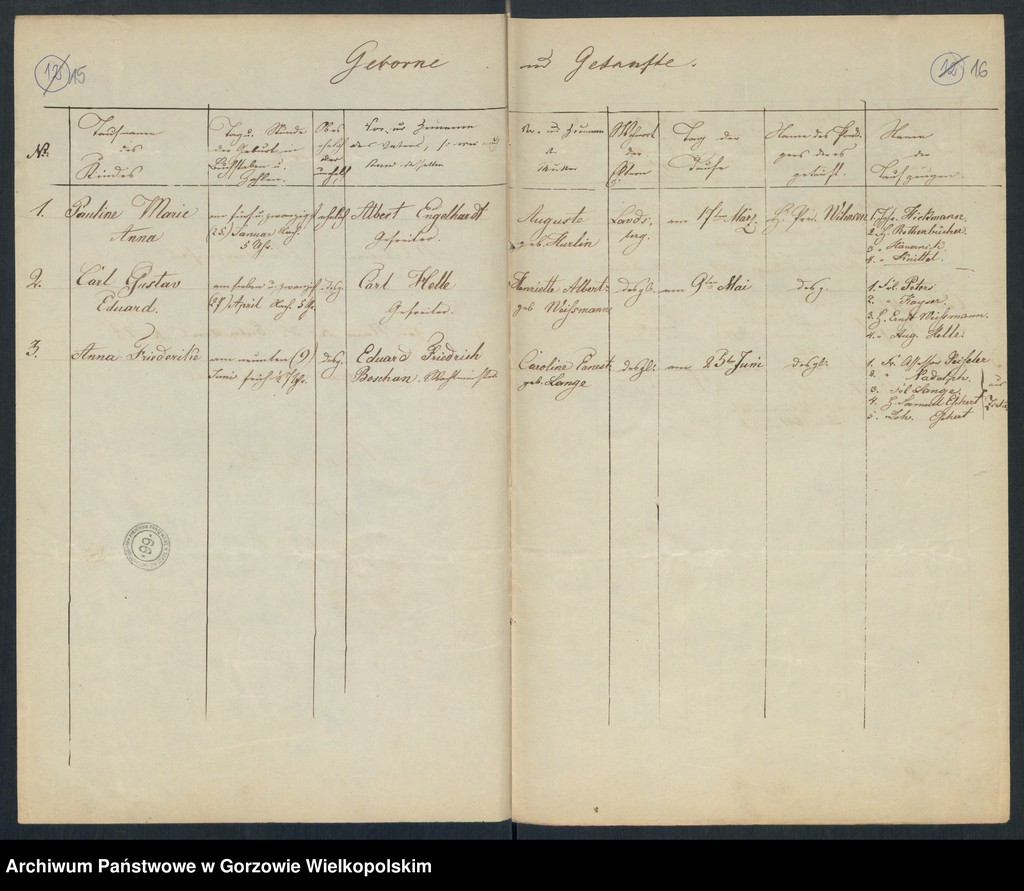 15
Geborne und Getaufte.
16
No.
Taufname
des
Kindes
Tag u. Stunde
der Geburt in
Buchstaben u.
Zahlen.
Ob es
ehelich
oder
unehel.
Vor- u. Zunamen
des Vaters, so wie
Stand desselben
Vor- und Zunamen
der
Mutter
Wohnort
der
Eltern
Tag der
Taufe
Name des Predi-
gers der es
getauft.
Namen
der
Taufzeugen.
1.
Pauline Marie
Anna
am fünf u. zwanzigst
(25) Januar Nach.
5 Uhr.
ehelich
Albert Engelhardt
Gefreiter.
Auguste
geb. Hurlin
Lands-
berg.
am 17ten März
H. Pred. Wilmsen
2. H. Rothenbücher
4. " Knittel.
2.
Carl Gustav
Eduard.
am sieben u. zwanzigst
(27) April Nach. 5 Uhr.
desgl.
Carl Helle
Gefreiter.
Henriette Albert.
geb. Weissmann
desgl.
am 9ten Mai
desgl.
1. Frl. Peters
2. " Kayser.
3. H. Ernst Weissmann.
4. " Aug. Helle.
3.
Anna Friederike
am neunten (9)
Juni früh Uhr.
desgl.
Eduard Friedrich
Boschan. Wachtmeister
Caroline Ernest.
geb. Lange
desgl.
am 23ten Juni
desgl.
2. " Nadolph.
3. Frl. Lange.
4. H. Samuel Ephert
5. " Joh. Ephert
66
Archiwum Państwowe w Gorzowie Wielkopolskim